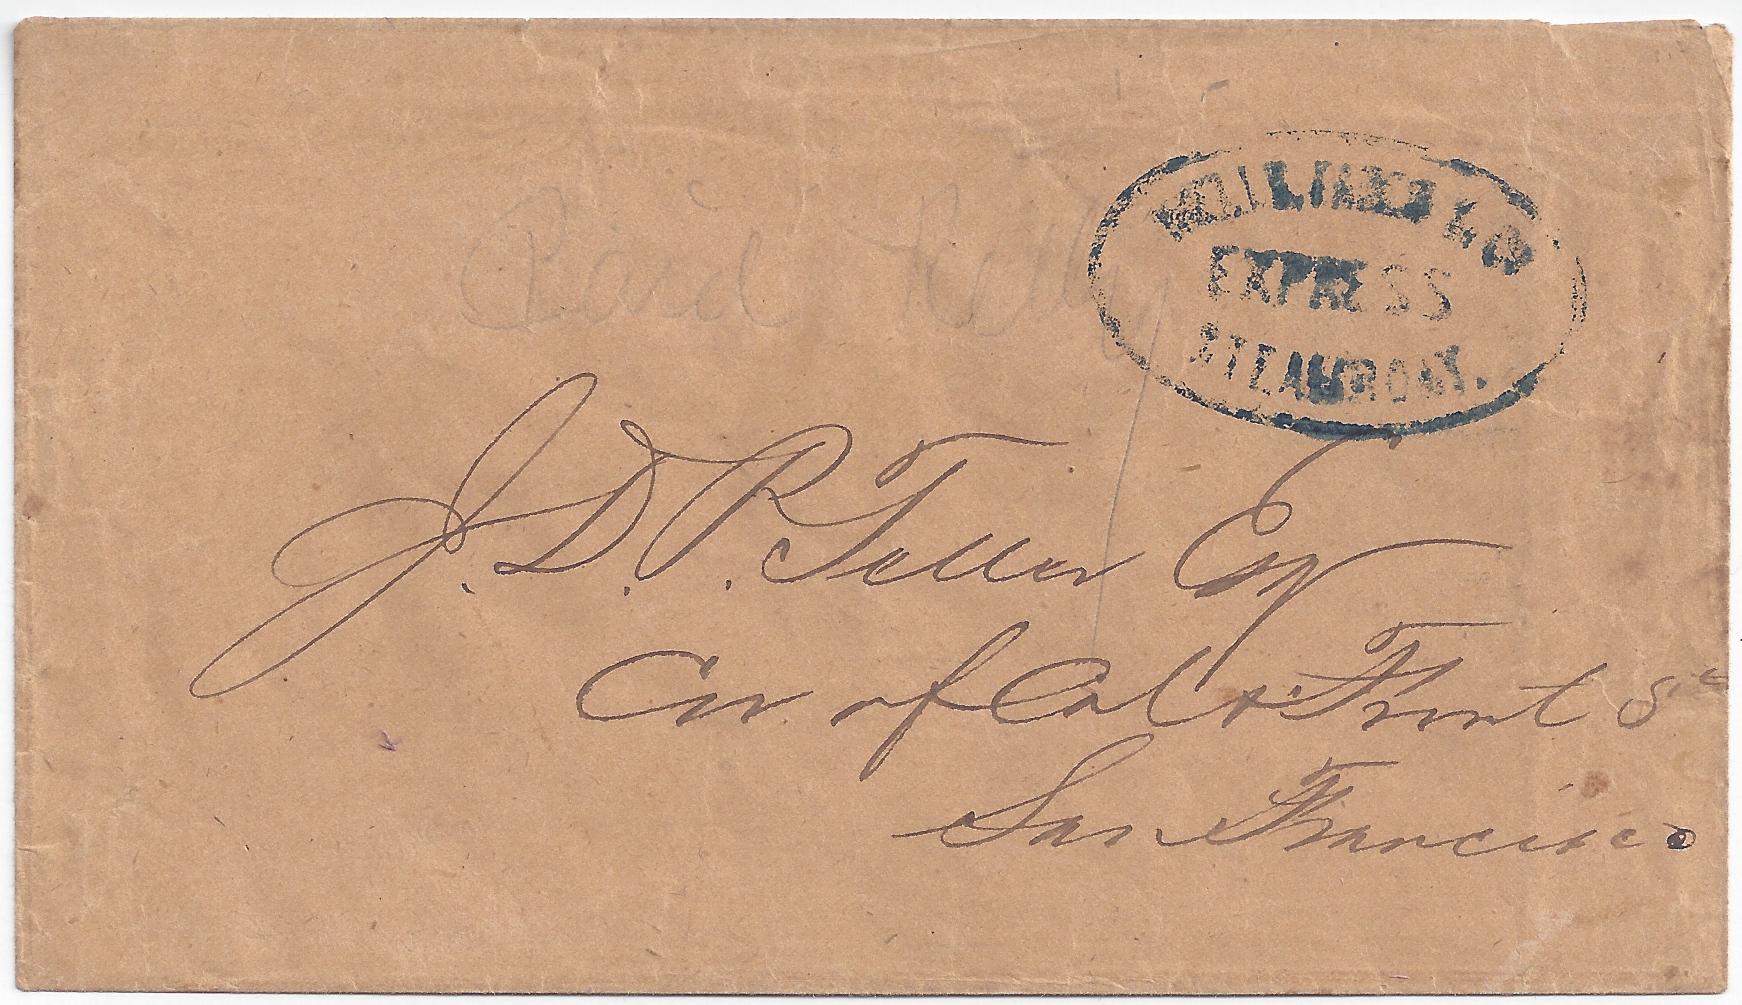 WELLS, FARGO & CO
EXPRESS
STEAMBOAT.
Paid
J. D. P. Teller Esq
Cor of Cal & Front St
San Francisco